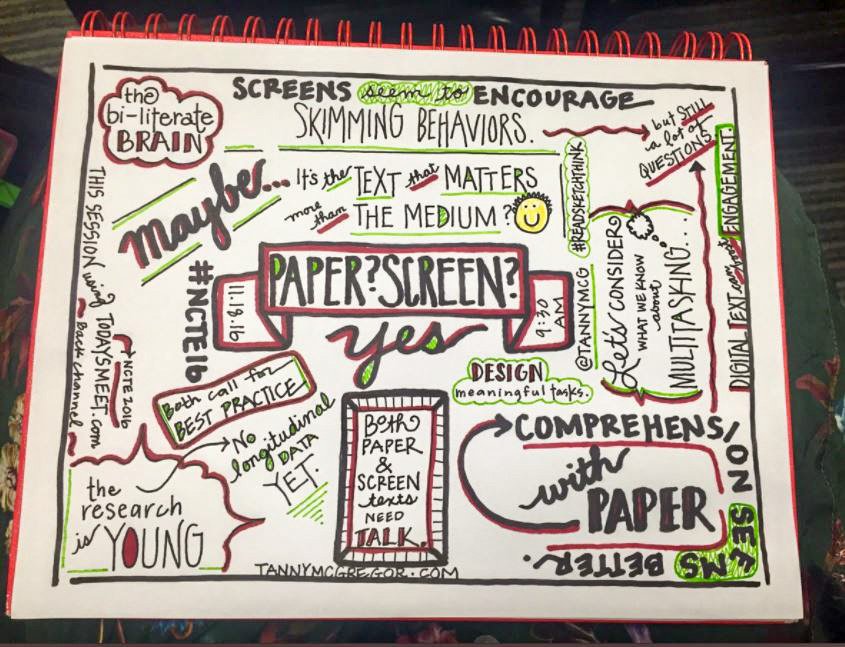 the
bi-literate
BRAIN
SCREENS seem to ENCOURAGE
SKIMMING BEHAVIORS.
but STILL
a lot of
QUESTIONS
Maybe...
It's the TEXT that MATTERS
more than THE MEDIUM?
#READSKETCHTHINK
@TANNYMCG
THIS SESSION using TODAYSMEET.com
NCTE2016
Back channel
#NCTE16
11.18.16
PAPER?SCREEN?
9:30
AM
yes
Let's CONSIDER
WHAT WE KNOW
about
MULTITASKING...
DIGITAL TEXT can boost ENGAGEMENT.
Both call for
BEST PRACTICE
DESIGN
meaningful tasks.
No
longitudinal
DATA
YET.
the
research
is YOUNG
BOTH
PAPER
&
SCREEN
texts
NEED
TALK.
COMPREHENSION
with
PAPER
SEEMS
BETTER.
TANNYMCGREGOR.COM